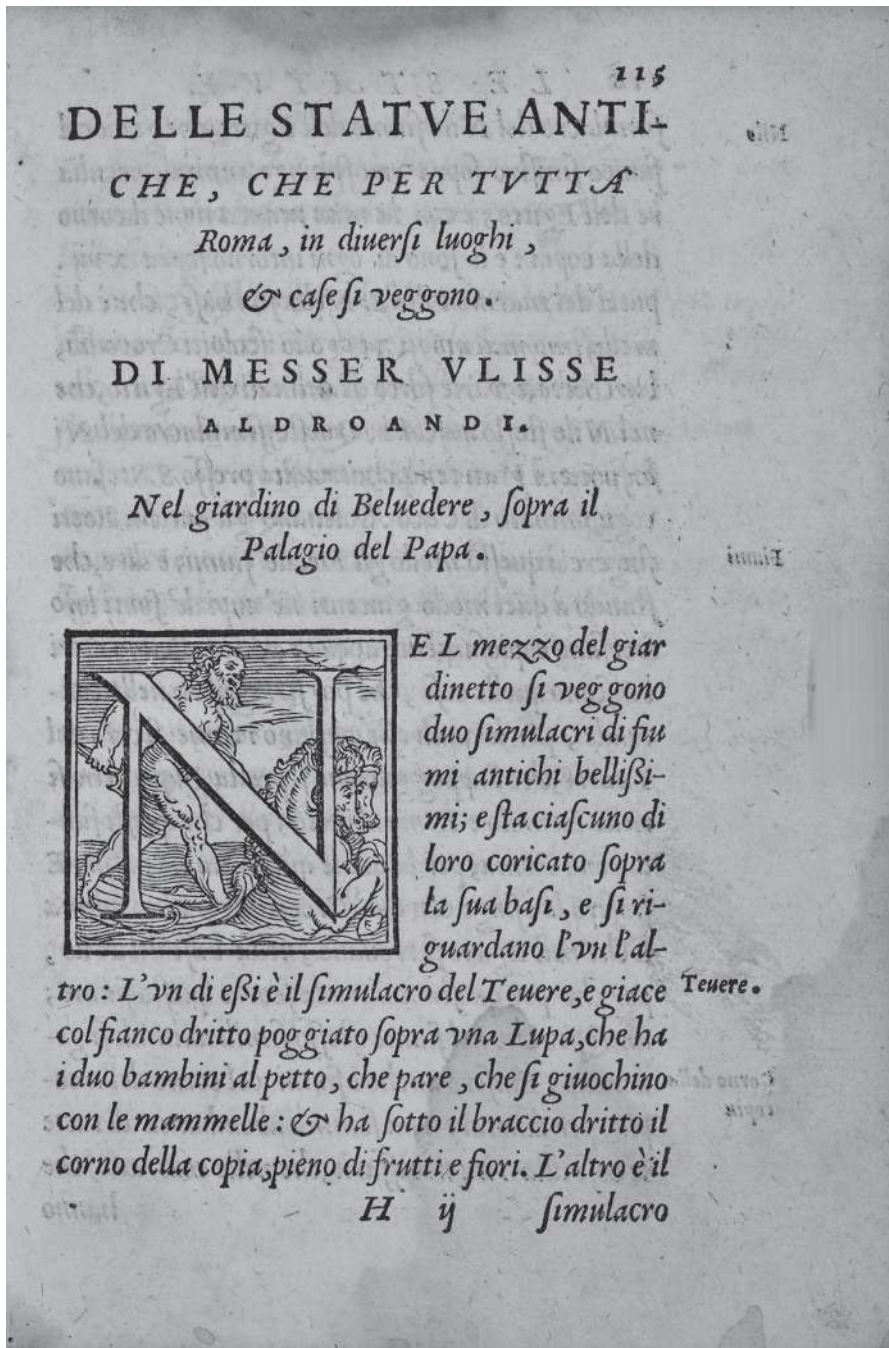 115
DELLE STATVE ANTI-
CHE, CHE PER TVTTA
Roma, in diuerſi luoghi,
& caſe ſi veggono.
DI MESSER VLISSE
ALDROANDI.
Nel giardino di Beluedere, ſopra il
Palagio del Papa.
NEL mezzo del giar
dinetto ſi veggono
duo ſimulacri di fiu
mi antichi bellißi-
mi; e ſta ciaſcuno di
loro coricato ſopra
la ſua baſi, e ſi ri-
guardano l'vn l'al-
tro: L'vn di eßi è il ſimulacro del Teuere, e giace Teuere.
col fianco dritto poggiato ſopra vna Lupa, che ha
i duo bambini al petto, che pare, che ſi giuochino
con le mammelle: & ha ſotto il braccio dritto il
corno della copia, pieno di frutti e fiori. L'altro è il
H ij ſimulacro